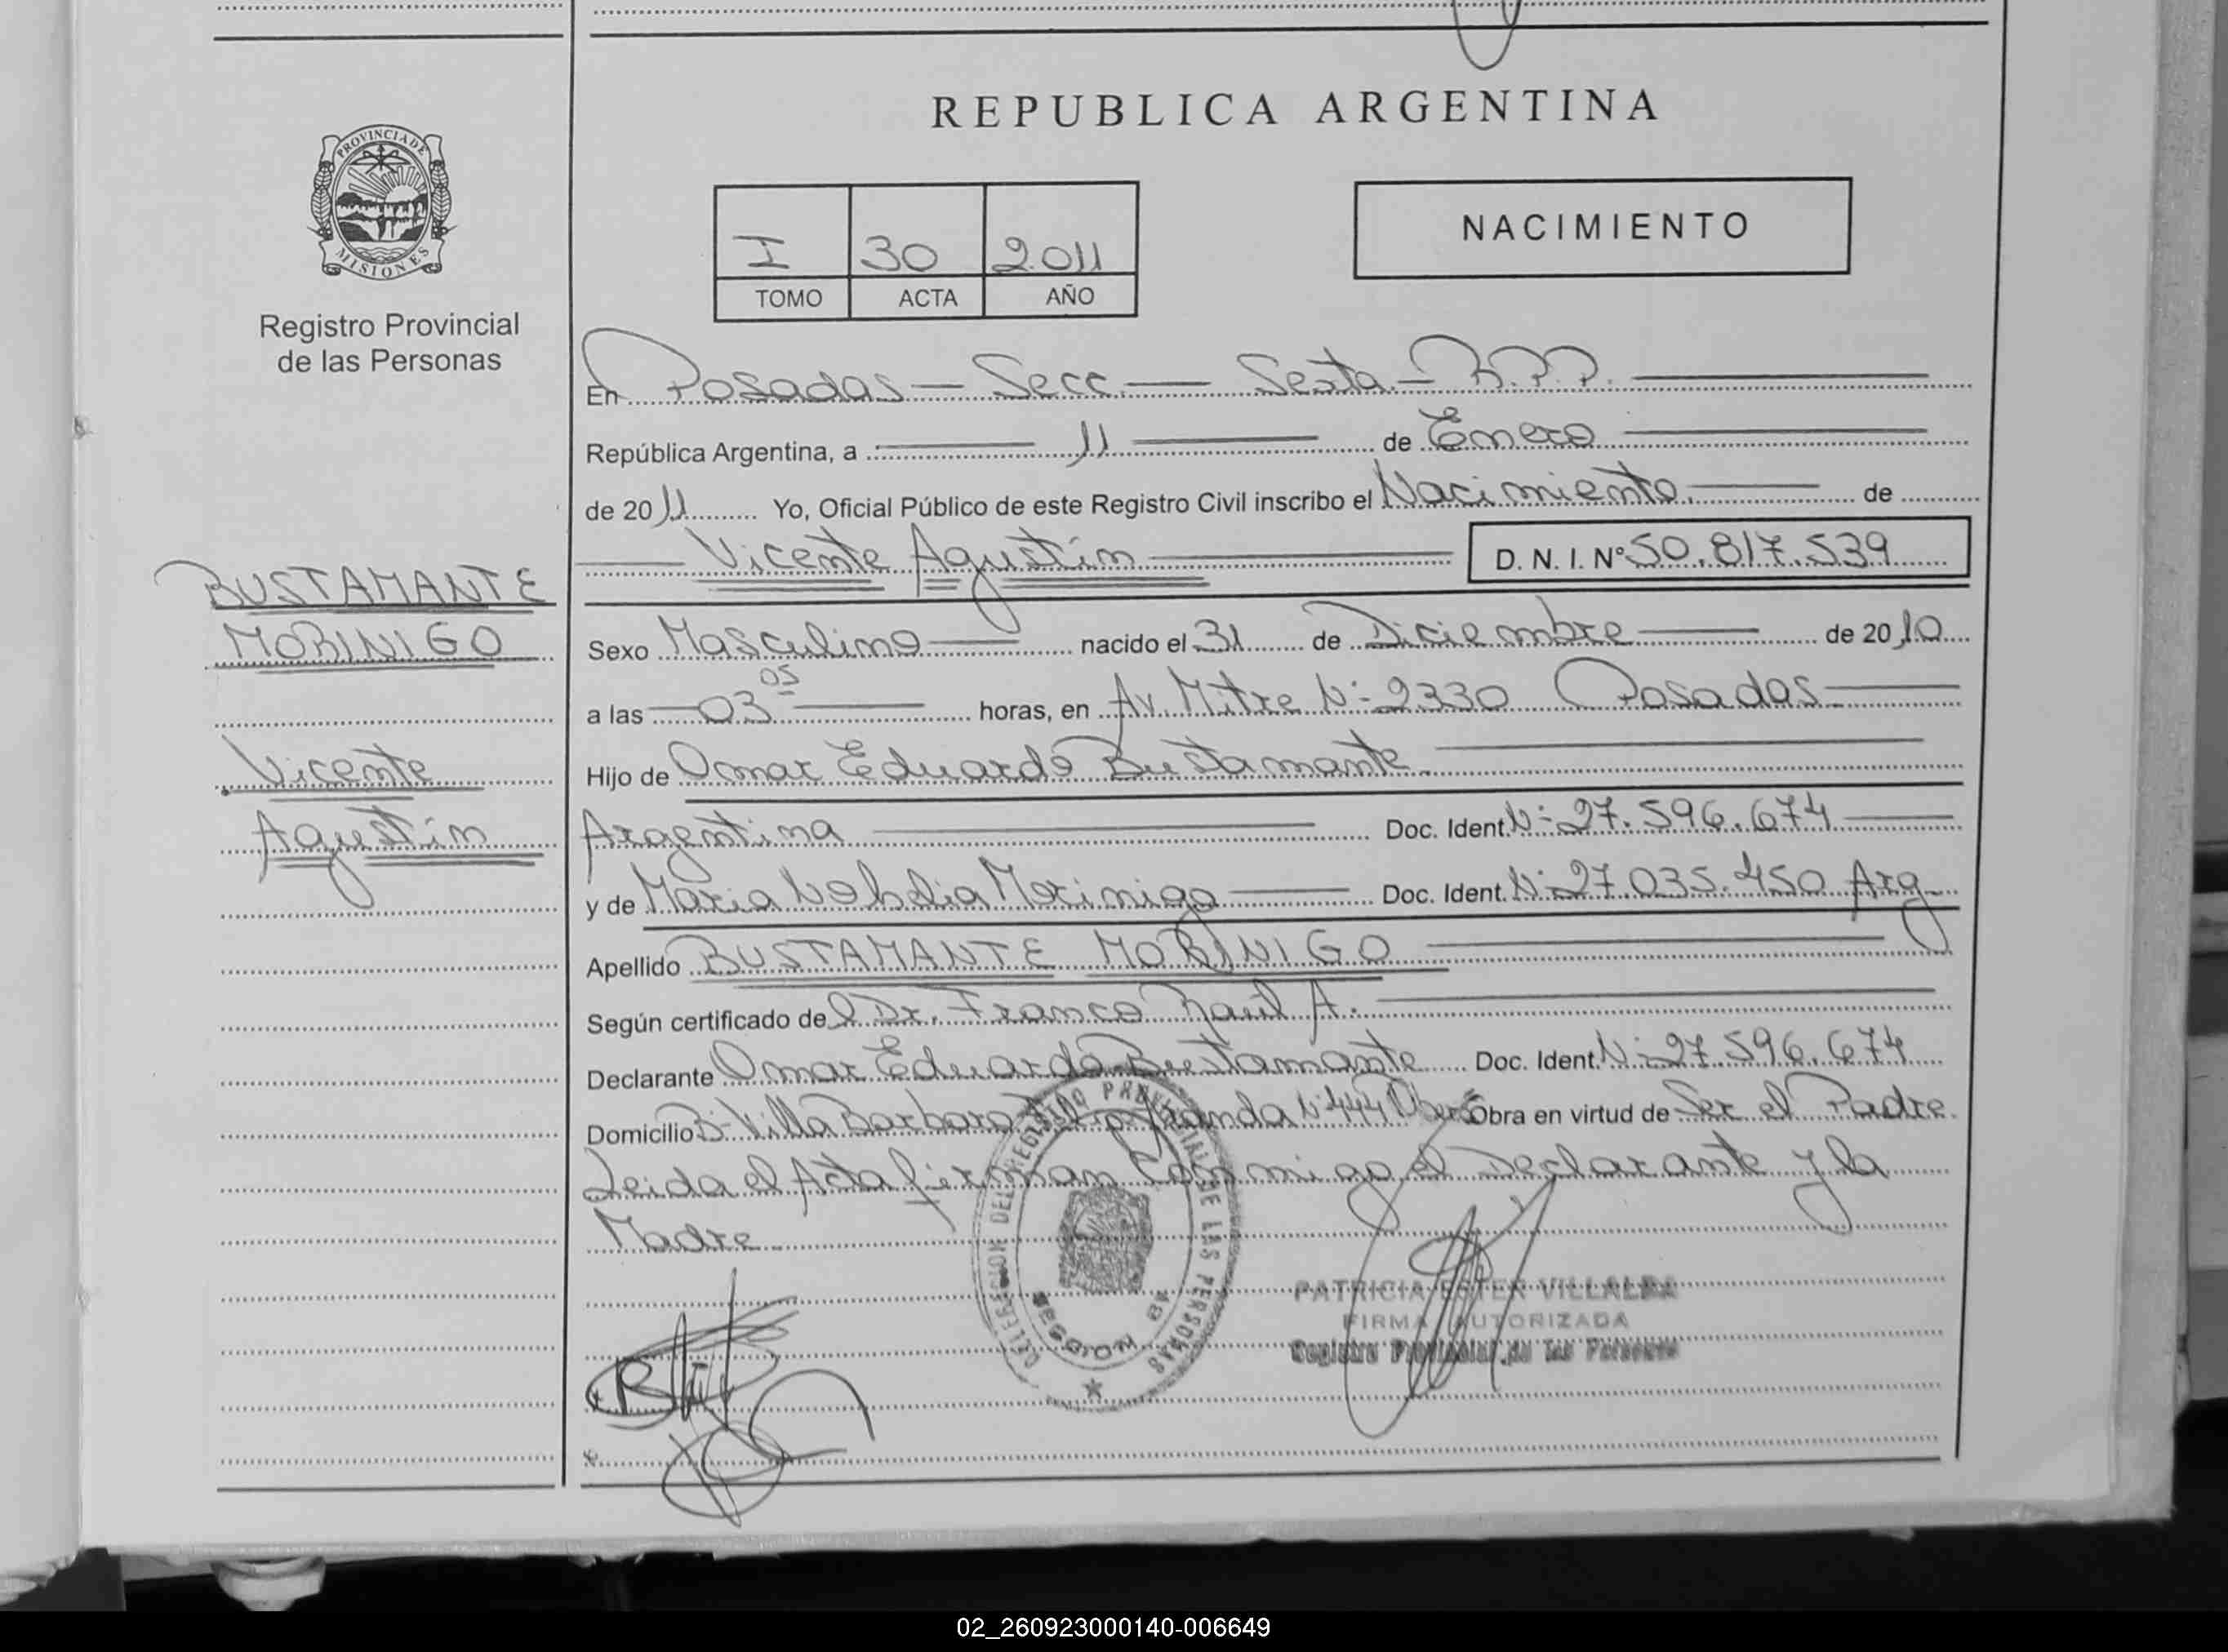 REPUBLICA ARGENTINA
PROVINCIA DE
MISIONES
Registro Provincial
de las Personas
I 30 2011
TOMO ACTA AÑO
NACIMIENTO
En Posadas - Secc. - Sexta - R.P.P.
República Argentina, a 11 de Enero
de 2011 Yo, Oficial Público de este Registro Civil inscribo el Nacimiento. de
Vicente Agustín D. N. I. Nº 50.817.539
BUSTAMANTE
MORINIGO
Vicente
Agustín
Sexo Masculino nacido el 31 de Diciembre de 2010
a las 03 05 horas, en Av. Mitre Nº 2330 Posadas
Hijo de Omar Eduardo Bustamante
Argentina Doc. Ident. Nº 27.596.674
y de Maria Morinigo Doc. Ident. Nº 27.035.450 Arg
Apellido BUSTAMANTE MORINIGO
Según certificado del Dr. Franco Raúl A.
Declarante Omar Eduardo Bustamante Doc. Ident. Nº 27.596.674
Domicilio Bº Villa Barbara Nº 444 Obra en virtud de Ser el Padre
Leida el Acta firman Conmigo el Declarante y la
Madre
REGISTRO PROVINCIAL DE LAS PERSONAS
PATRICIA ESTER VILLALBA
FIRMA AUTORIZADA
Registro Provincial de las Personas
02_260923000140-006649